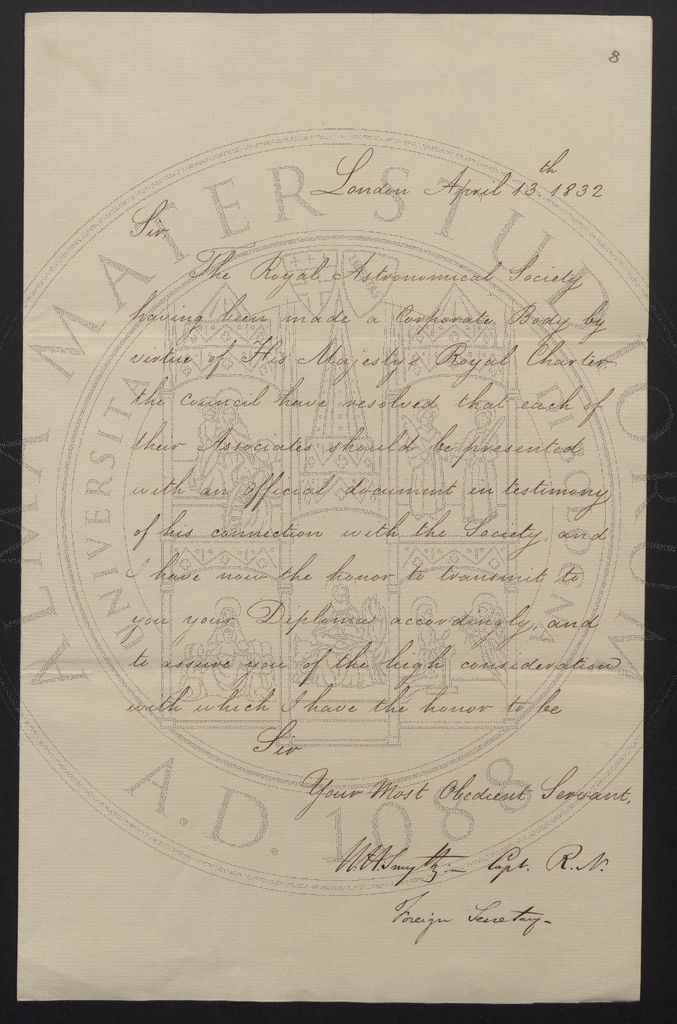 8
London April 13th 1832
Sir,
The Royal Astronomical Society
having been made a Corporate Body by
virtue of His Majesty's Royal Charter,
the Council have resolved that each of
their Associates should be presented
with an official document in testimony
of his connection with the Society, and
I have now the honor to transmit to
you your Diploma accordingly, and
to assure you of the high consideration
with which I have the honor to be
Sir
Your Most Obedient Servant,
W.H. Smyth – Capt. R.N.
Foreign Secretary –
ALMA MATER STUDIORUM
UNIVERSITA DI BOLOGNA
A.D. 1088